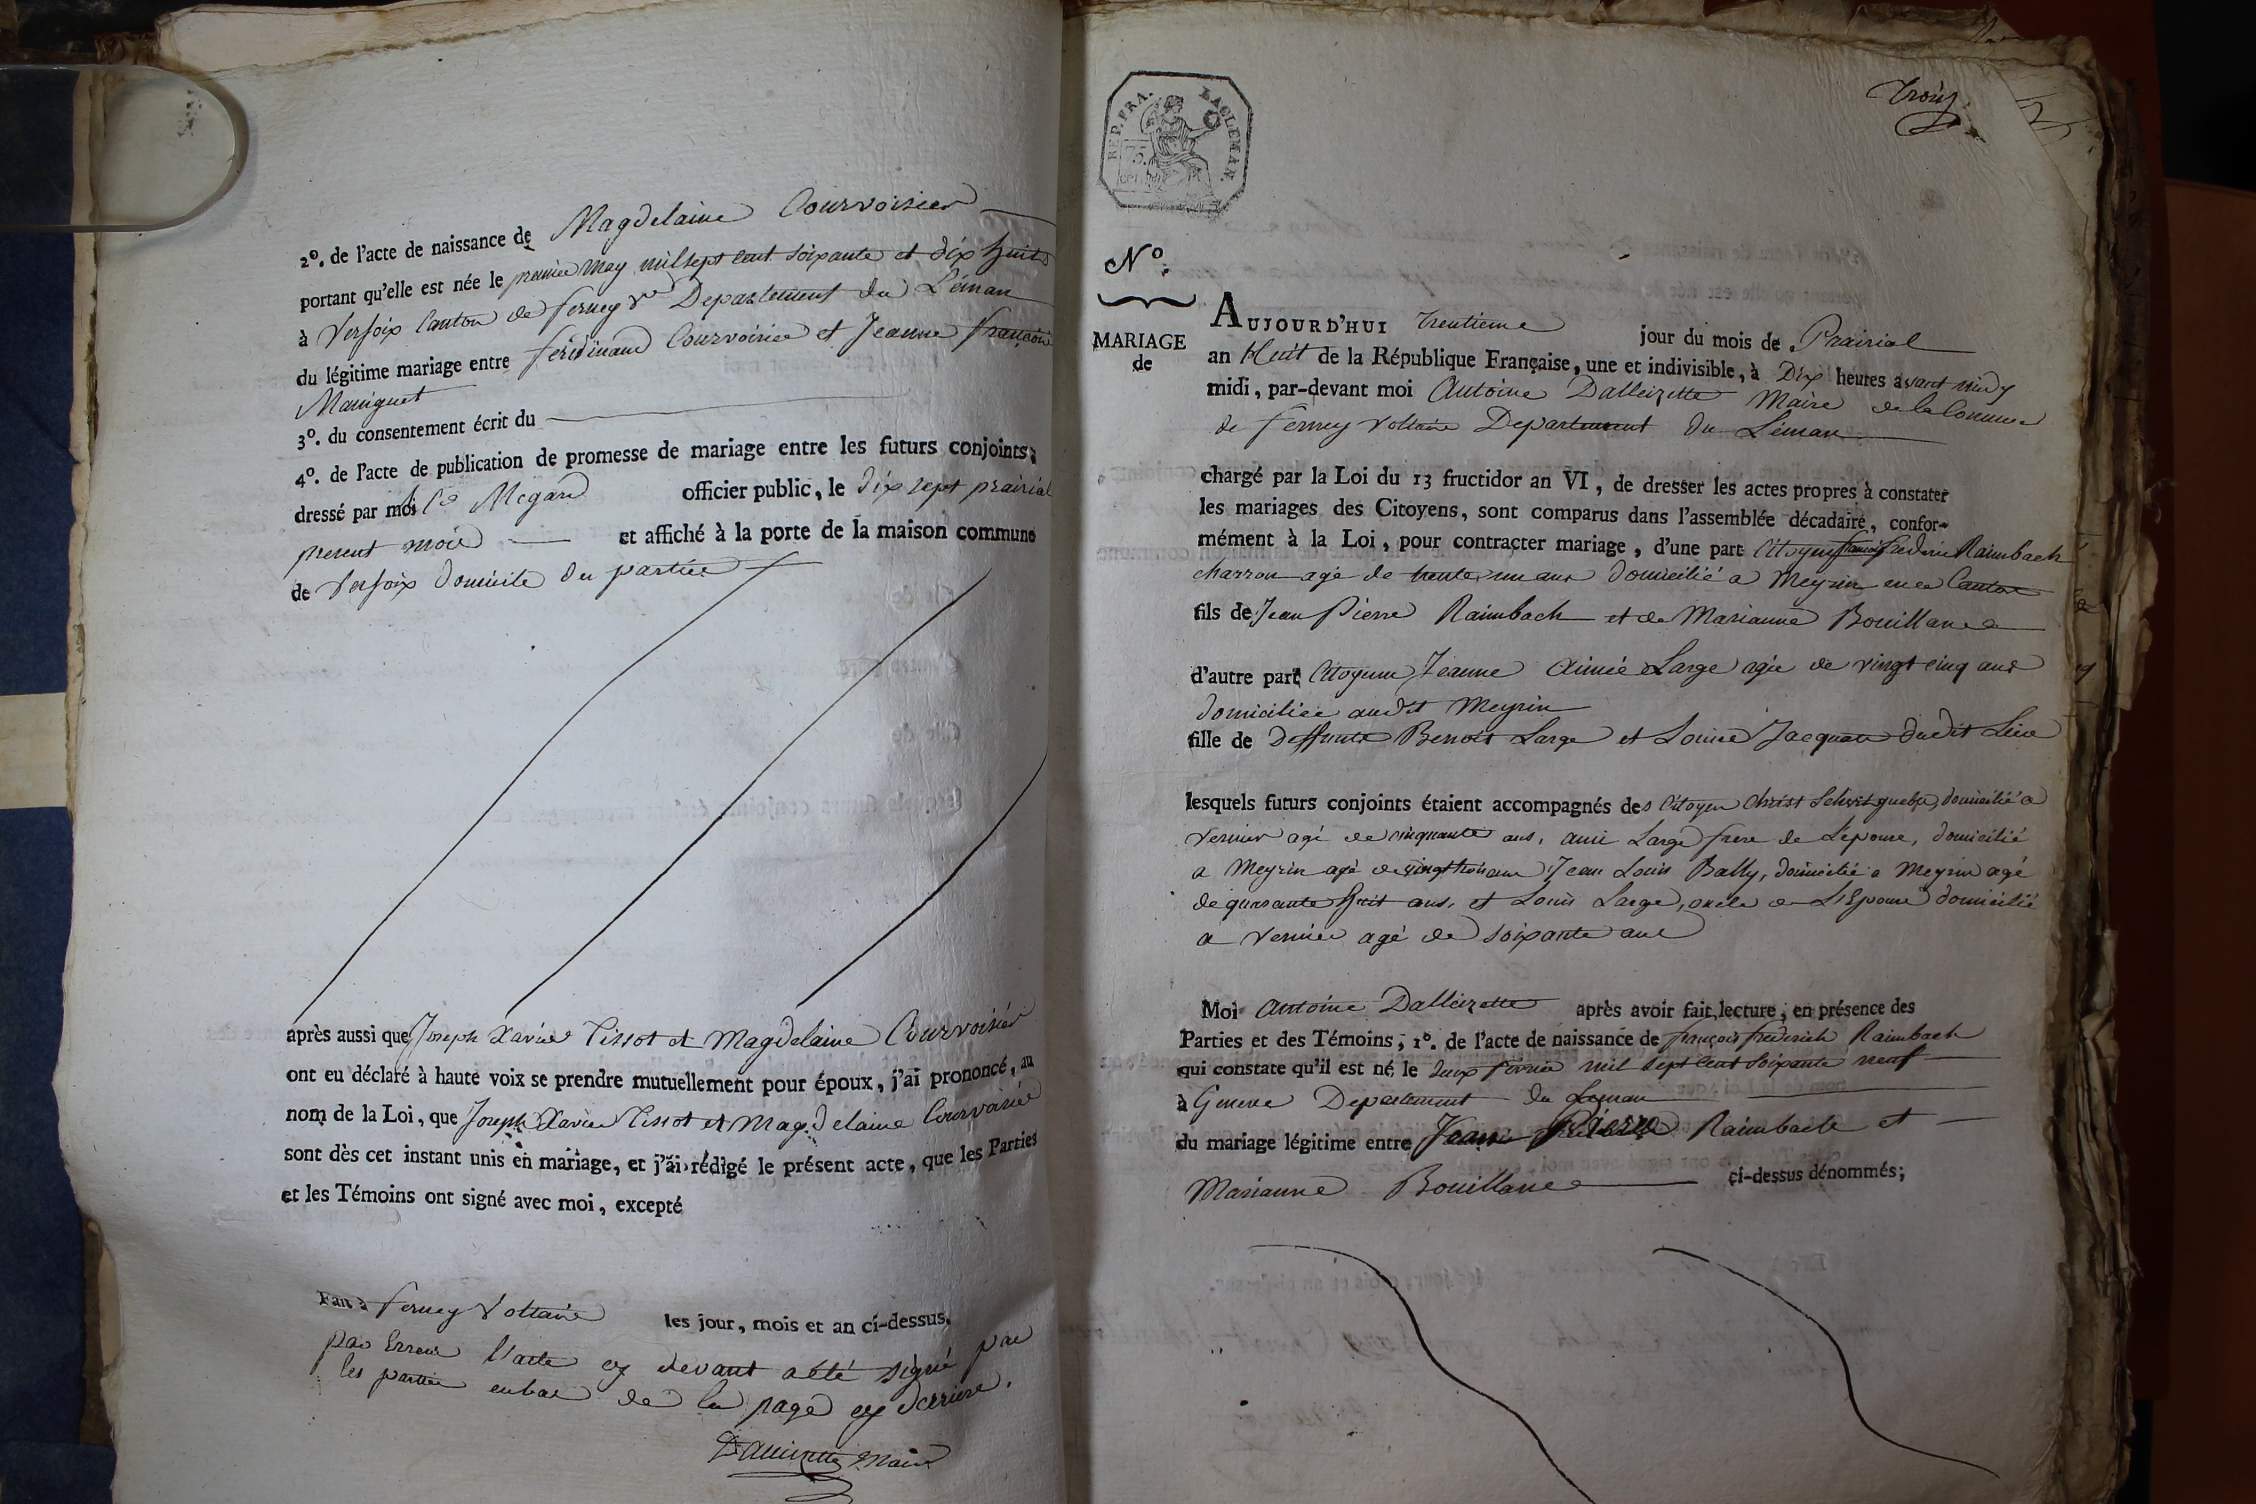 2º. de l'acte de naissance de Magdelaine Courvoisier
portant qu'elle est née le premier may mil sept cent soixante et dix huit
à Versoix Canton de ferney Vre Departement du Léman
du légitime mariage entre ferdinand Courvoisier et Jeanne françoise
Maniguet
3º. du consentement écrit du
4º. de l'acte de publication de promesse de mariage entre les futurs conjoints,
dressé par moi Megard officier public, le dix sept prairial
present mois et affiché à la porte de la maison commune
de Versoix domicile des parties
après aussi que Joseph Xavier Tissot et Magdelaine Courvoisier
ont eu déclaré à haute voix se prendre mutuellement pour époux, j'ai prononcé, au
nom de la Loi, que Joseph Xavier Tissot et Magdelaine Courvoisier
sont dès cet instant unis en mariage, et j'ai rédigé le présent acte, que les Parties
et les Témoins ont signé avec moi, excepté
Fait à ferney Voltaire les jour, mois et an ci-dessus.
par Erreur l'acte cy devant a été signé par
les parties en bas de la page cy derriere.
Dalleizette Maire
Trois
REP. FRA. 75. CEN. LEMAN.
Nº.
MARIAGE
de
AUJOURD'HUI trentieme jour du mois de Prairial
an Huit de la République Française, une et indivisible, à Dix heures avant midy
midi, par-devant moi Antoine Dalleizette Maire de la Commune
de ferney Voltaire Departement du Léman
chargé par la Loi du 13 fructidor an VI, de dresser les actes propres à constater
les mariages des Citoyens, sont comparus dans l'assemblée décadaire, confor-
mément à la Loi, pour contracter mariage, d'une part Citoyen françois frederic Raimbach
charron agé de trente un ans domicilié a Meyrin en ce Canton
fils de Jean Pierre Raimbach et de Marianne Bouillane
d'autre part Citoyenne Jeanne Aimée Large agée de vingt cinq ans
domiciliée audit Meyrin
fille de deffunts Benoit Large et Louise Jacquate dudit Lieu
lesquels futurs conjoints étaient accompagnés des Citoyen Christ domicilié a
Vernier agé de cinquante ans, ami Large frere de L'epouse, domicilié
a Meyrin agé de vingt trois ans Jean Louis Bally, domicilié a Meyrin agé
de quarante huit ans, et Louis Large, oncle de L'Epouse domicilié
a Vernier agé de soixante ans
Moi Antoine Dalleizette après avoir fait lecture, en présence des
Parties et des Témoins, 1º. de l'acte de naissance de françois frederich Raimbach
qui constate qu'il est né le deux fevrier mil sept cent soixante neuf
à Geneve Departement du Leman
du mariage légitime entre Jean Pierre Raimbach et
Marianne Bouillane ci-dessus dénommés;